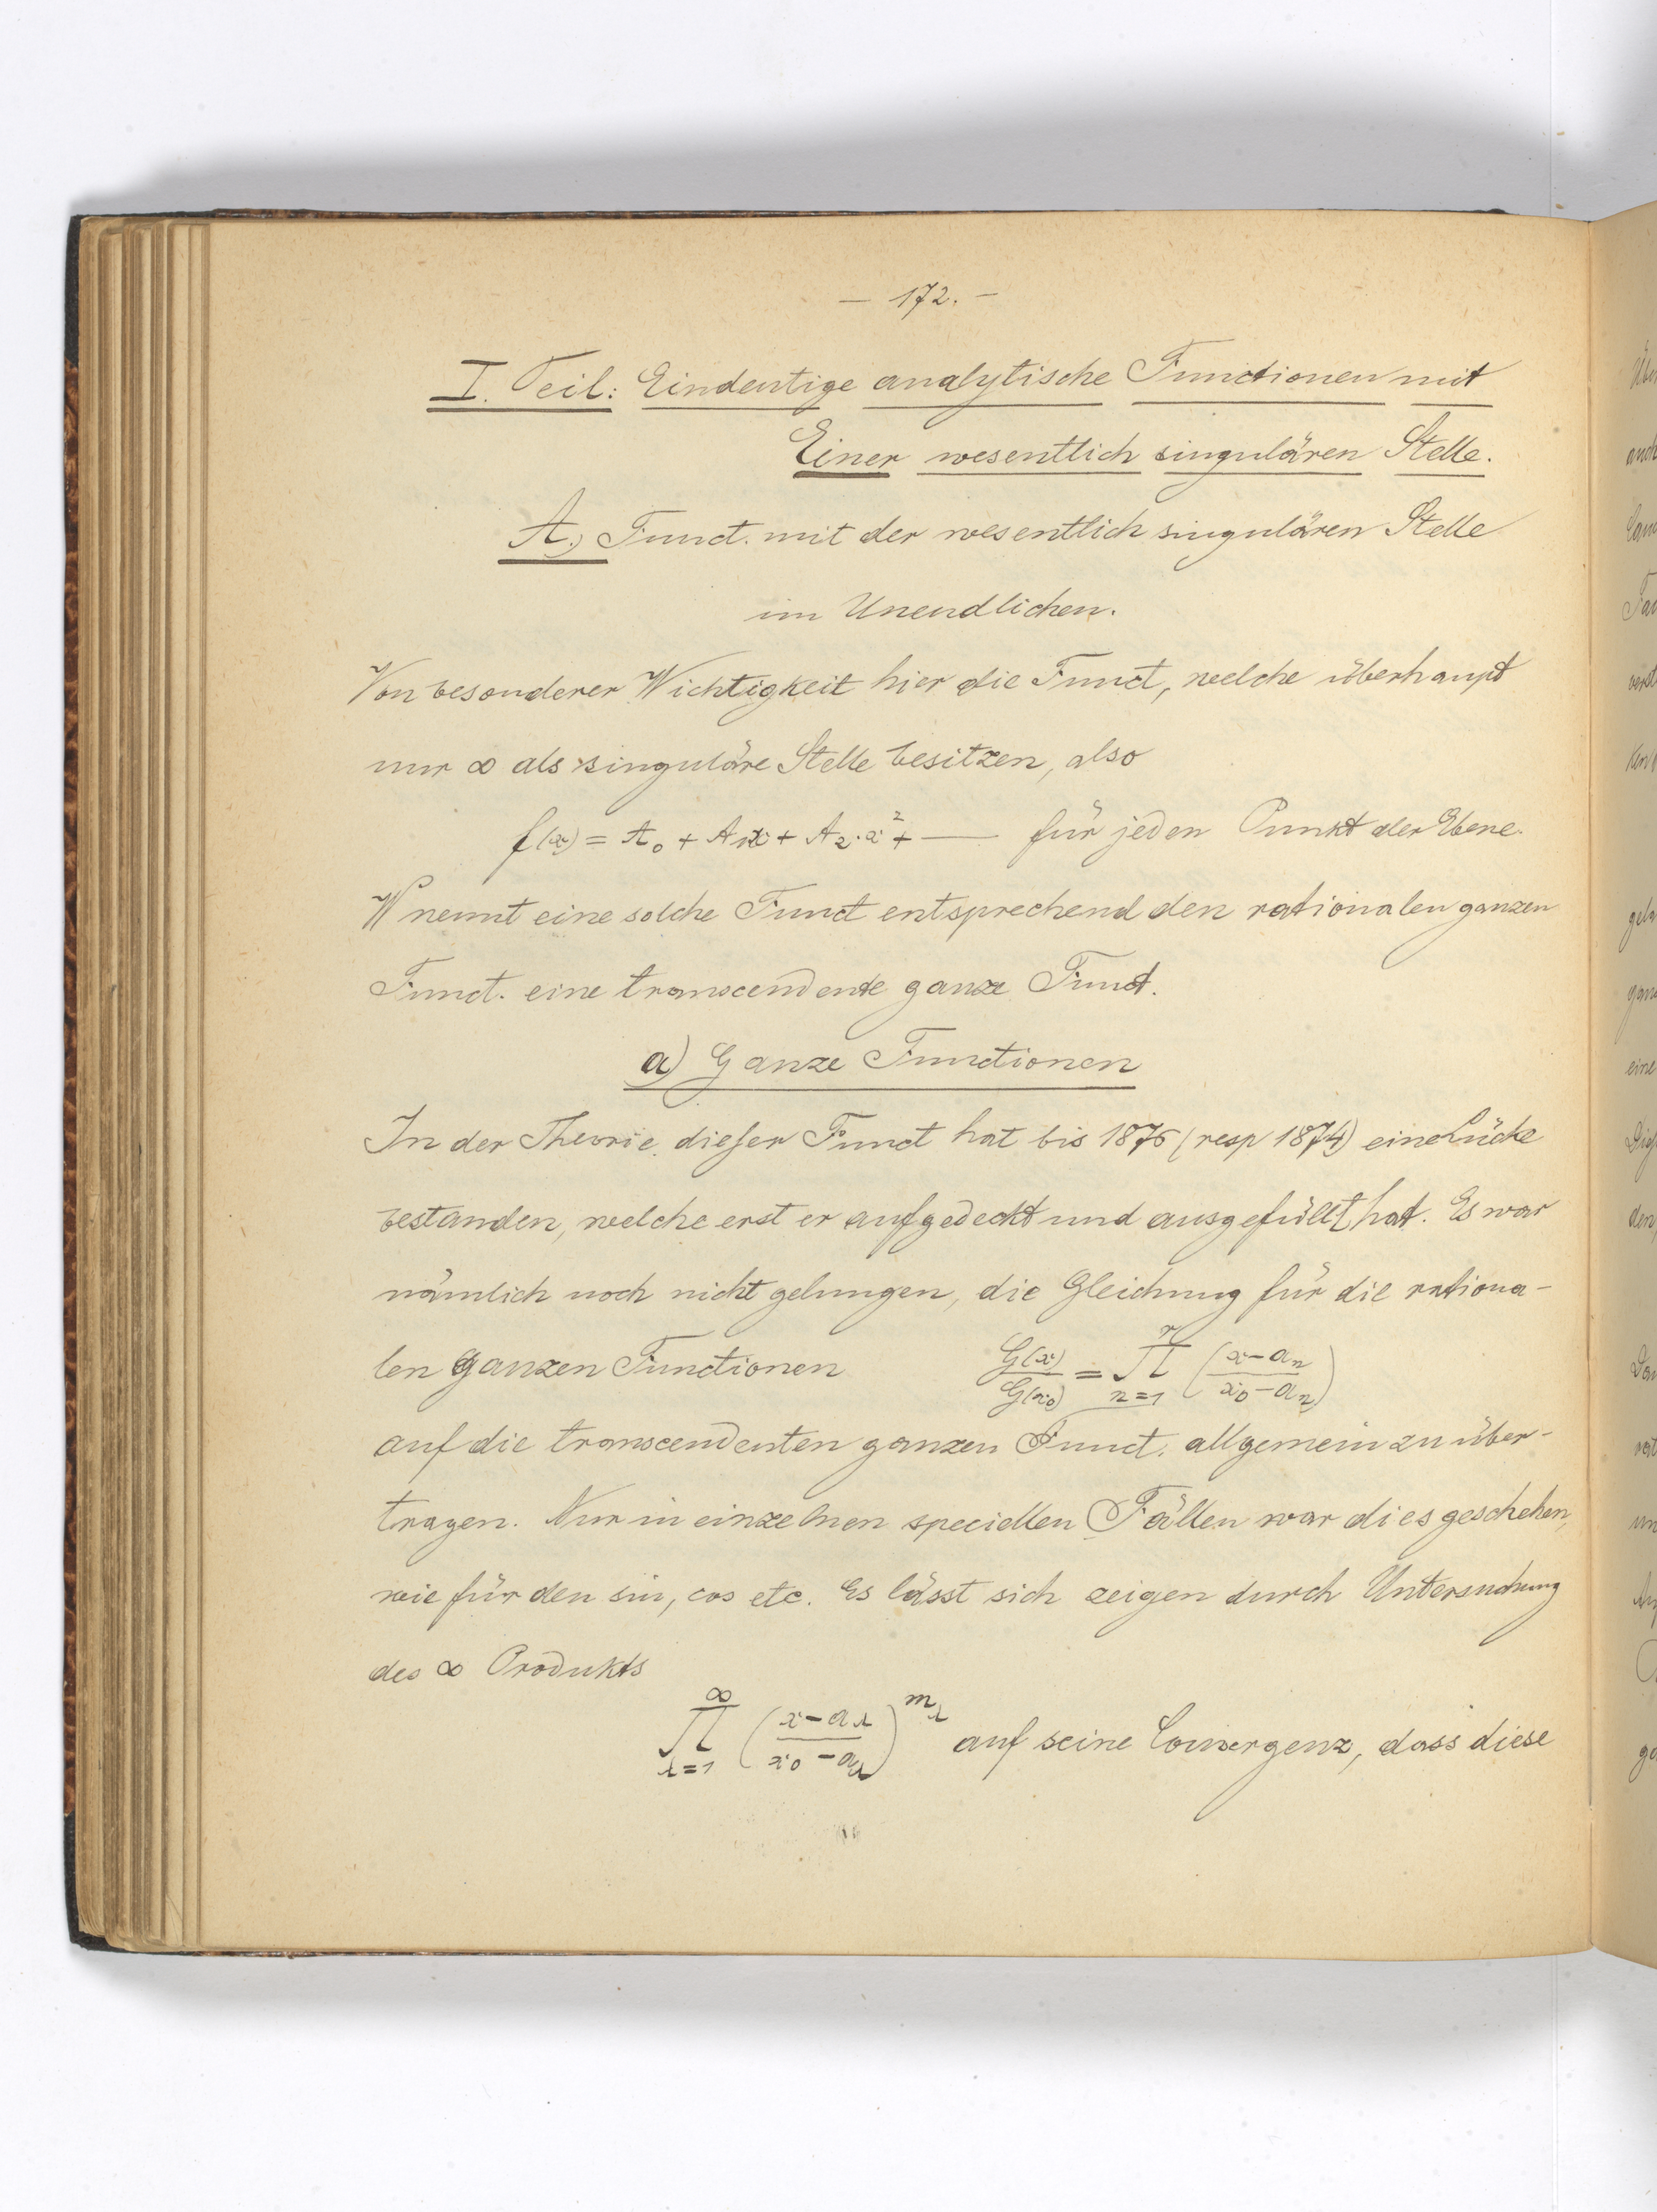 — 172. —
I. Teil: Eindeutige analytische Functionen mit
Einer wesentlich singulären Stelle.
A.) Funct. mit der wesentlich singulären Stelle
im Unendlichen.
Von besonderer Wichtigkeit hier die Funct, welche überhaupt
nur ∞ als singuläre Stelle besitzen, also
f(x) = A₀ + A₁x + A₂·x² + — für jeden Punkt der Ebene.
W nennt eine solche Funct entsprechend den rationalen ganzen
Funct. eine transcendente ganze Funct.
a) Ganze Functionen
In der Theorie dieser Funct hat bis 1876 (resp 1874) eine Lücke
bestanden, welche erst er aufgedeckt und ausgefüllt hat. Es war
nämlich noch nicht gelungen, die Gleichung für die rationa-
len ganzen Functionen G(x)/G(x₀) = ∏ₙ₌₁ʳ ((x-aₙ)/(x₀-aₙ))
auf die transcendenten ganzen Funct. allgemein zu über-
tragen. Nur in einzelnen speciellen Fällen war dies geschehen,
wie für den sin, cos etc. Es lässt sich zeigen durch Untersuchung
des ∞ Produkts
∏_{λ=1}^∞ ((x-a_λ)/(x₀-a_λ))^{m_λ} auf seine Convergenz, dass diese